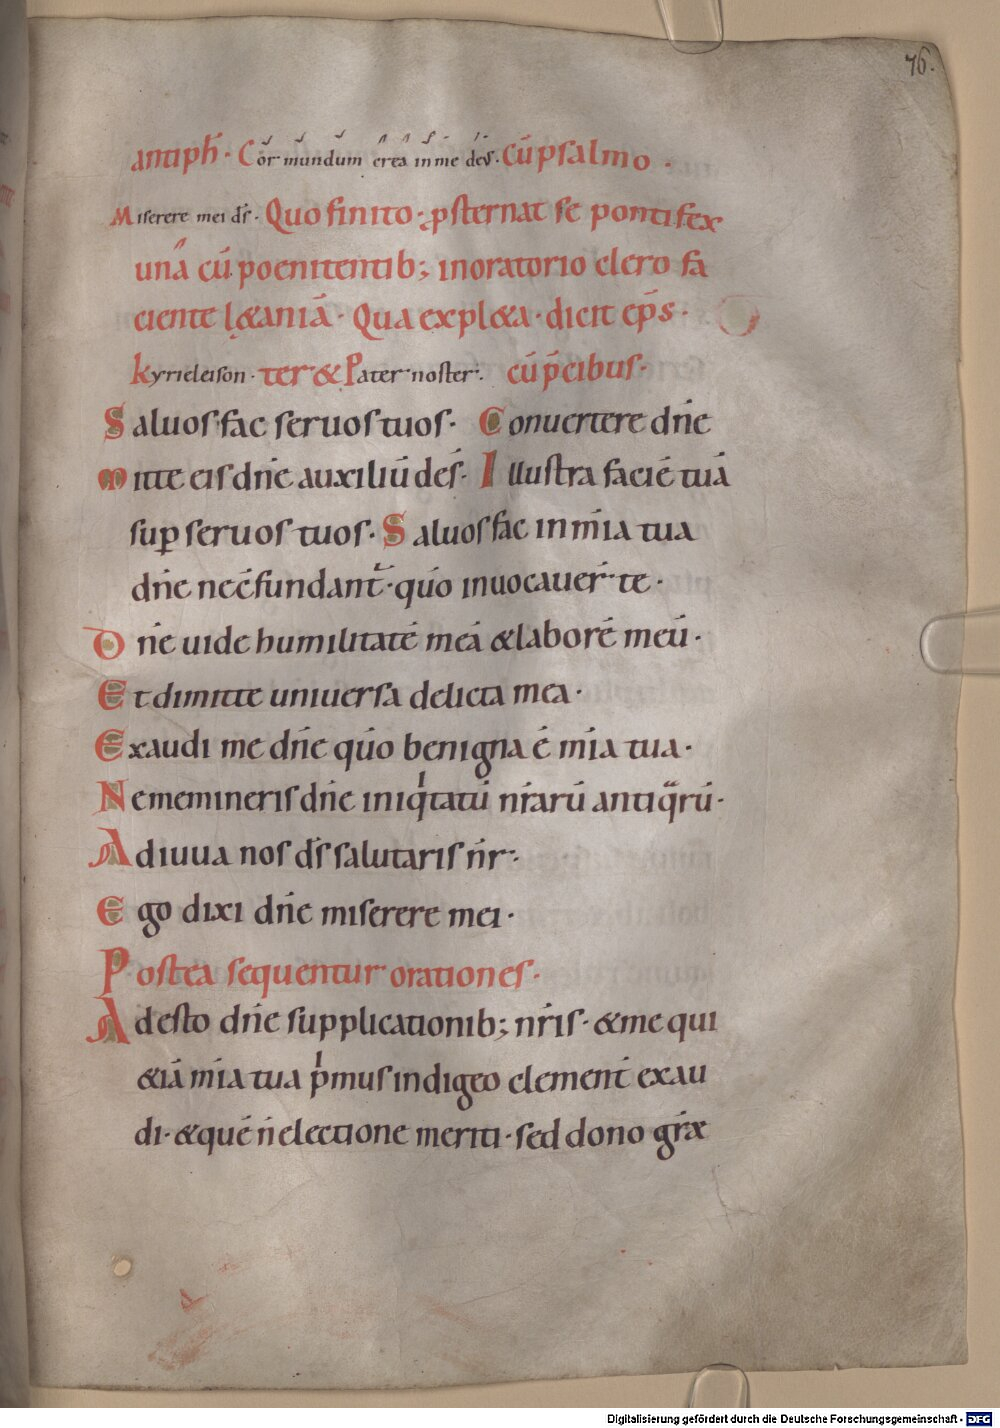 76.
antiph̄· Cor mundum crea in me ds̄· Cū psalmo·
Miserere mei ds̄· Quo finito· ꝓsternat se pontifex
unā cū poenitentib; in oratorio clero fa
ciente lę&aniā· Qua expl&a· dicit ep̄s·
Kyrieleison· ter· & Pater noster· cū p̄cibus·
Saluos fac seruos tuos· Conuertere dn̄e
Mitte eis dn̄e auxiliū de sc̄· Illustra faciē tuā
sup̱ seruos tuos· Saluos fac in mīa tua
dn̄e ne c̄fundant᷑· qūo inuocauer̄ te·
Dn̄e uide humilitatē meā & laborē meū·
Et dimitte uniuersa delicta mea·
Exaudi me dn̄e qūo benigna ē mīa tua·
Ne memineris dn̄e iniqͥtatū nr̄arū antiqͣrū·
Adiuua nos ds̄ salutaris nr̄·
Ego dixi dn̄e miserere mei·
Postea sequentur orationes·
Adesto dn̄e supplicationib; nr̄is· & me qui
&iā mīa tua pͥmus indigeo clement̄ exau
di· & quē n̄ electione meriti· sed dono gr̄æ
Digitalisierung gefördert durch die Deutsche Forschungsgemeinschaft - DFG